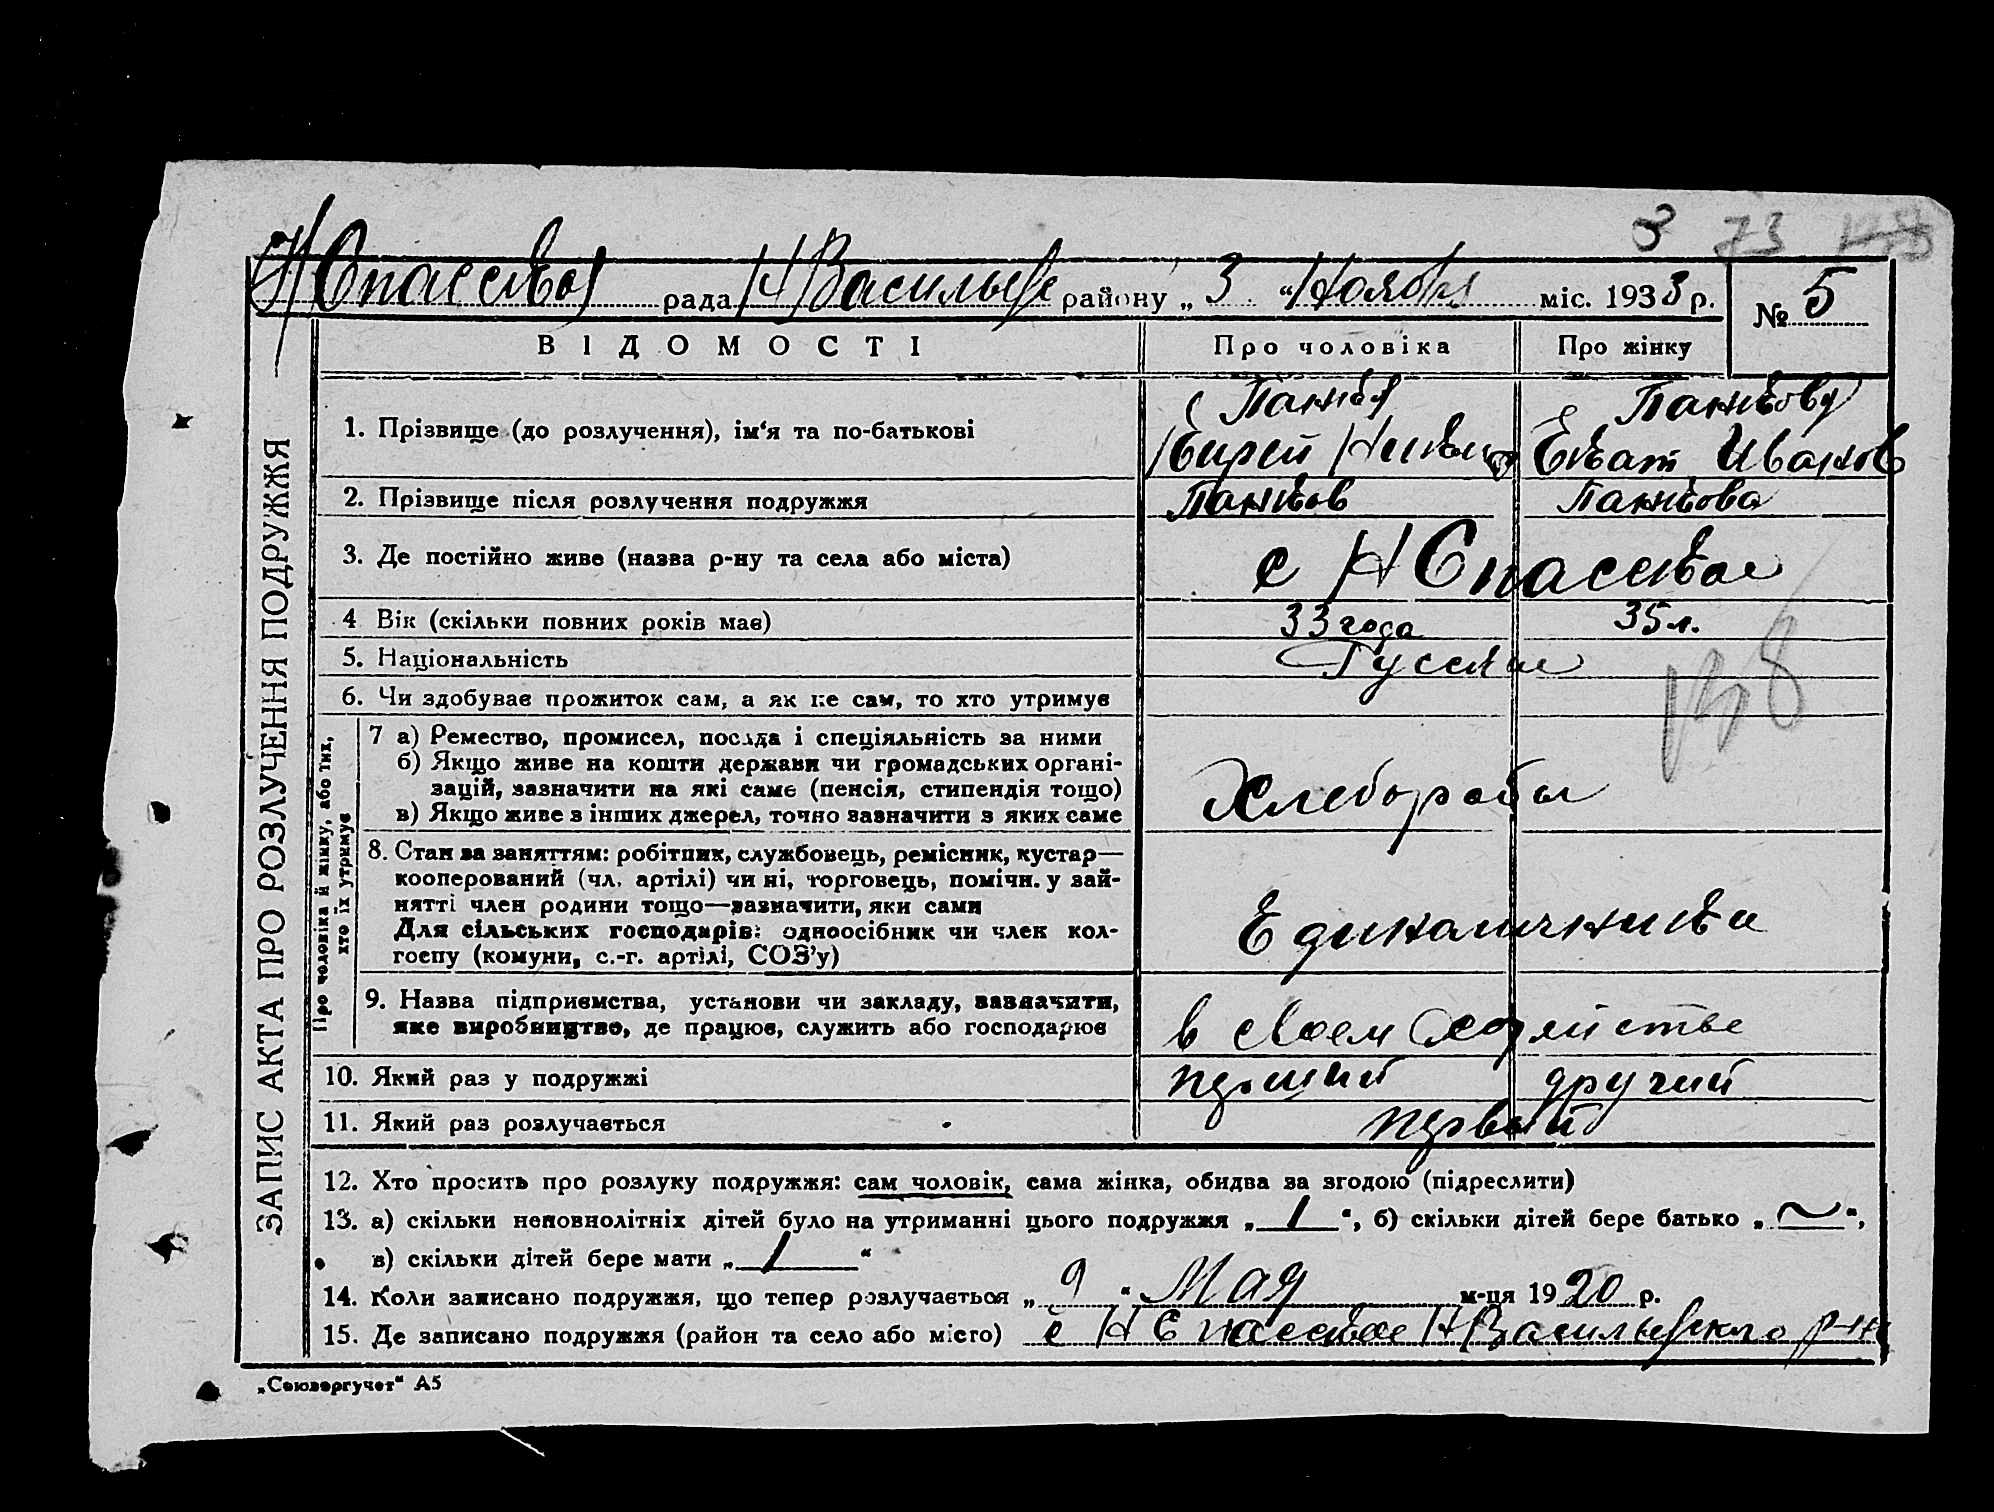 3 73
Н Спасская рада Н Василье районў „ 3 “ Ноября міс. 1933 р. № 5
ЗАПИС АКТА ПРО РОЗЛУЧЕННЯ ПОДРУЖЖЯ
ВІДОМОСТІ Про чоловіка Про жінку
Панков Панкову
1. Прізвище (до розлучення), ім‘я та по-батькові Екат Иванов
2. Прізвище після розлучення подружжя Панков Панкова
3. Де постійно живе (назва р-ну та села або міста) с Н Спасское
4 Вік (скільки повних років має) 33 года 35 л.
5. Національність Русские
6. Чи здобуває прожиток сам, а як не сам, то хто утримує
Про чоловіка й жінку, або тих,
хто їх утримує
7 а) Ремество, промисел, посада і спеціяльність за ними
б) Якщо живе на кошти держави чи громадських органі-
зацій, зазначити на які саме (пенсія, стипендія тощо) Хлеборобы
в) Якщо живе з інших джерел, точно зазначити з яких саме
8. Стан за заняттям: робітник, службовець, ремісник, кустар—
кооперований (чл. артілі) чи ні, торговець, помічн. у зай-
нятті член родини тощо—зазначити, яки сами Единаличники
Для сільських господарів: одноосібник чи член кол-
госпу (комуни, с.-г. артілі, СОЗ’у)
9. Назва підприємства, установи чи закладу, зазначити,
яке виробництво, де працює, служить або господарює в своем хозяистве
10. Який раз у подружжі другий
11. Який раз розлучається первый
12. Хто просить про розлуку подружжя: сам чоловік, сама жінка, обидва за згодою (підреслити)
13. а) скільки неповнолітніх дітей було на утриманні цього подружжя „ 1 “, б) скільки дітей бере батько „ ~ “,
в) скільки дітей бере мати „ 1 “
14. Коли записано подружжя, що тепер розлучається „ 9 “ Мая м-ця 1920 р.
15. Де записано подружжя (район та село або місто) с Н Спасское Н Васильевского р-на
„Союзоргучет“ А5